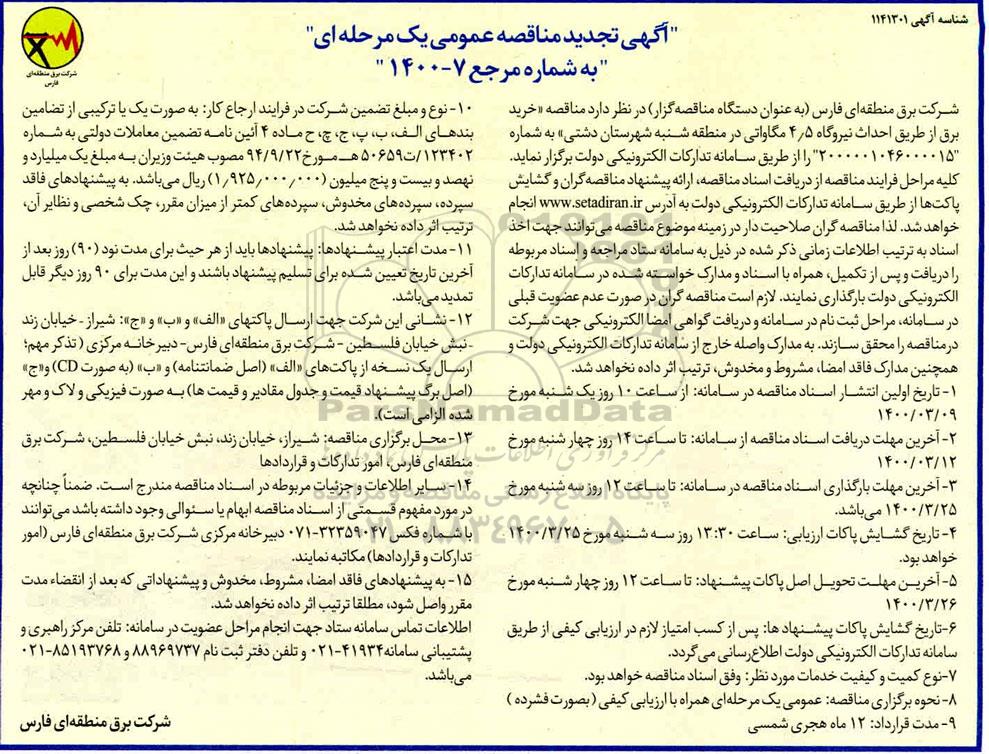 شناسه آگهی ۱۱۴۱۳۰۱
شرکت برق منطقه‌ای
فارس
"آگهی تجدید مناقصه عمومی یک مرحله ای"
"به شماره مرجع ۷-۱۴۰۰"
شرکت برق منطقه‌ای فارس (به عنوان دستگاه مناقصه‌گزار) در نظر دارد مناقصه «خرید
برق از طریق احداث نیروگاه ۴٫۵ مگاواتی در منطقه شنبه شهرستان دشتی» به شماره
"۲۰۰۰۰۰۱۰۴۶۰۰۰۰۱۵" را از طریق سامانه تدارکات الکترونیکی دولت برگزار نماید.
کلیه مراحل فرایند مناقصه از دریافت اسناد مناقصه، ارائه پیشنهاد مناقصه‌گران و گشایش
پاکت‌ها از طریق سامانه تدارکات الکترونیکی دولت به آدرس www.setadiran.ir انجام
خواهد شد. لذا مناقصه گران صلاحیت دار در زمینه موضوع مناقصه می‌توانند جهت اخذ
اسناد به ترتیب اطلاعات زمانی ذکر شده در ذیل به سامانه ستاد مراجعه و اسناد مربوطه
را دریافت و پس از تکمیل، همراه با اسناد و مدارک خواسته شده در سامانه تدارکات
الکترونیکی دولت بارگذاری نمایند. لازم است مناقصه گران در صورت عدم عضویت قبلی
در سامانه، مراحل ثبت نام در سامانه و دریافت گواهی امضا الکترونیکی جهت شرکت
در مناقصه را محقق سازند. به مدارک واصله خارج از سامانه تدارکات الکترونیکی دولت و
همچنین مدارک فاقد امضا، مشروط و مخدوش، ترتیب اثر داده نخواهد شد.
۱- تاریخ اولین انتشار اسناد مناقصه در سامانه: از ساعت ۱۰ روز یک شنبه مورخ
۱۴۰۰/۰۳/۰۹
۲- آخرین مهلت دریافت اسناد مناقصه از سامانه: تا ساعت ۱۴ روز چهار شنبه مورخ
۱۴۰۰/۰۳/۱۲
۳- آخرین مهلت بارگذاری اسناد مناقصه در سامانه: تا ساعت ۱۲ روز سه شنبه مورخ
۱۴۰۰/۳/۲۵ می‌باشد.
۴- تاریخ گشایش پاکات ارزیابی: ساعت ۱۳:۳۰ روز سه شنبه مورخ ۱۴۰۰/۳/۲۵
خواهد بود.
۵- آخرین مهلت تحویل اصل پاکات پیشنهاد: تا ساعت ۱۲ روز چهار شنبه مورخ
۱۴۰۰/۳/۲۶
۶- تاریخ گشایش پاکات پیشنهاد ها: پس از کسب امتیاز لازم در ارزیابی کیفی از طریق
سامانه تدارکات الکترونیکی دولت اطلاع‌رسانی می‌گردد.
۷- نوع کمیت و کیفیت خدمات مورد نظر: وفق اسناد مناقصه خواهد بود.
۸- نحوه برگزاری مناقصه: عمومی یک مرحله‌ای همراه با ارزیابی کیفی (بصورت فشرده)
۹- مدت قرارداد: ۱۲ ماه هجری شمسی
۱۰- نوع و مبلغ تضمین شرکت در فرایند ارجاع کار: به صورت یک یا ترکیبی از تضامین
بندهای الف، ب، پ، ج، چ، ح ماده ۴ آئین نامه تضمین معاملات دولتی به شماره
۱۲۳۴۰۲/ت۵۰۶۵۹ هـ مورخ ۹۴/۹/۲۲ مصوب هیئت وزیران به مبلغ یک میلیارد و
نهصد و بیست و پنج میلیون (۱٫۹۲۵٫۰۰۰٫۰۰۰) ریال می‌باشد. به پیشنهادهای فاقد
سپرده، سپرده‌های مخدوش، سپرده‌های کمتر از میزان مقرر، چک شخصی و نظایر آن،
ترتیب اثر داده نخواهد شد.
۱۱- مدت اعتبار پیشنهادها: پیشنهادها باید از هر حیث برای مدت نود (۹۰) روز بعد از
آخرین تاریخ تعیین شده برای تسلیم پیشنهاد باشند و این مدت برای ۹۰ روز دیگر قابل
تمدید می‌باشد.
۱۲- نشانی این شرکت جهت ارسال پاکتهای «الف» و «ب» و «ج»: شیراز - خیابان زند
- نبش خیابان فلسطین - شرکت برق منطقه‌ای فارس- دبیرخانه مرکزی (تذکر مهم؛
ارسال یک نسخه از پاکت‌های «الف» (اصل ضمانتنامه) و «ب» (به صورت CD) و«ج»
(اصل برگ پیشنهاد قیمت و جدول مقادیر و قیمت ها) به صورت فیزیکی و لاک و مهر
شده الزامی است).
۱۳- محل برگزاری مناقصه: شیراز، خیابان زند، نبش خیابان فلسطین، شرکت برق
منطقه‌ای فارس، امور تدارکات و قراردادها
۱۴- سایر اطلاعات و جزییات مربوطه در اسناد مناقصه مندرج است. ضمناً چنانچه
در مورد مفهوم قسمتی از اسناد مناقصه ابهام یا سئوالی وجود داشته باشد می‌توانند
با شماره فکس ۳۲۳۵۹۰۴۷-۰۷۱ دبیرخانه مرکزی شرکت برق منطقه‌ای فارس (امور
تدارکات و قراردادها) مکاتبه نمایند.
۱۵- به پیشنهادهای فاقد امضا، مشروط، مخدوش و پیشنهاداتی که بعد از انقضاء مدت
مقرر واصل شود، مطلقا ترتیب اثر داده نخواهد شد.
اطلاعات تماس سامانه ستاد جهت انجام مراحل عضویت در سامانه: تلفن مرکز راهبری و
پشتیبانی سامانه ۴۱۹۳۴-۰۲۱ و تلفن دفتر ثبت نام ۸۸۹۶۹۷۳۷ و ۸۵۱۹۳۷۶۸-۰۲۱
می‌باشد.
شرکت برق منطقه‌ای فارس
ParsNamadData
پایگاه اطلاع رسانی مناقصه و مزایده
۰۲۱-۸۸۳۴۹۶۷۰-۵